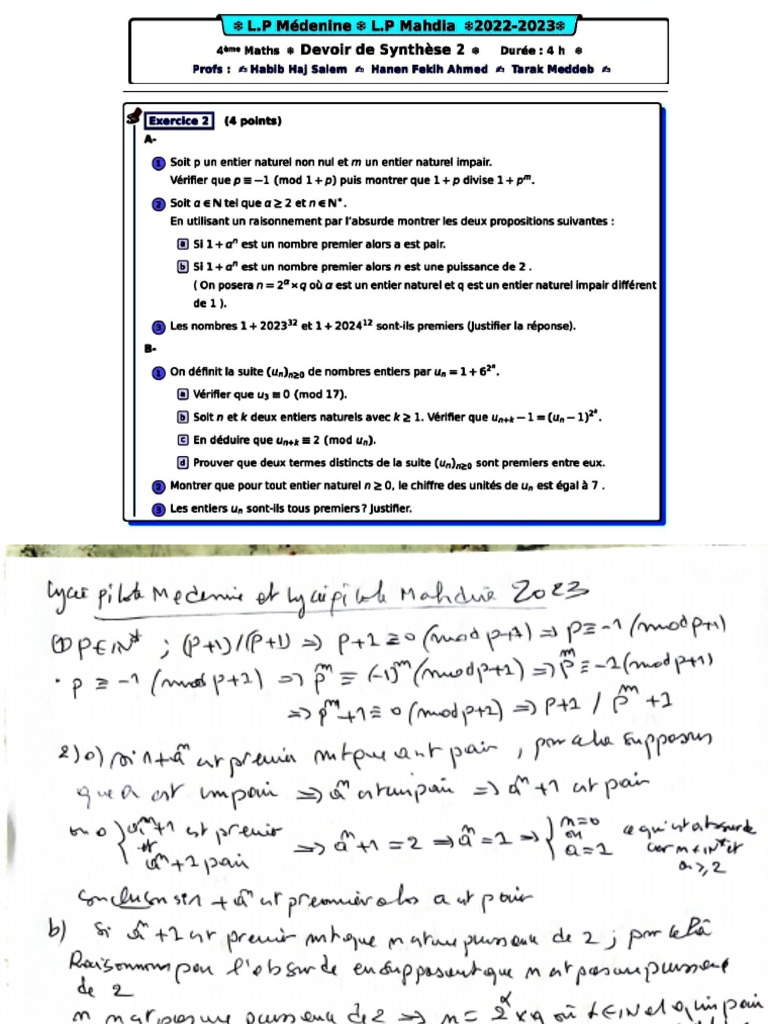 ❄ L.P Médenine ❄ L.P Mahdia ❄2022-2023❄
4ème Maths ❄ Devoir de Synthèse 2 ❄ Durée : 4 h ❄
Profs : ✍ Habib Haj Salem ✍ Hanen Fekih Ahmed ✍ Tarak Meddeb ✍
Exercice 2 (4 points)
A-
1 Soit p un entier naturel non nul et m un entier naturel impair.
Vérifier que p ≡ −1 (mod 1 + p) puis montrer que 1 + p divise 1 + pᵐ.
2 Soit a ∈ ℕ tel que a ≥ 2 et n ∈ ℕ*.
En utilisant un raisonnement par l'absurde montrer les deux propositions suivantes :
a Si 1 + aⁿ est un nombre premier alors a est pair.
b Si 1 + aⁿ est un nombre premier alors n est une puissance de 2 .
( On posera n = 2^α × q où α est un entier naturel et q est un entier naturel impair différent
de 1 ).
3 Les nombres 1 + 2023³² et 1 + 2024¹² sont-ils premiers (Justifier la réponse).
B-
1 On définit la suite (uₙ)ₙ≥₀ de nombres entiers par uₙ = 1 + 6^2ⁿ.
a Vérifier que u₃ ≡ 0 (mod 17).
b Soit n et k deux entiers naturels avec k ≥ 1. Vérifier que uₙ₊ₖ − 1 = (uₙ − 1)^2ᵏ.
c En déduire que uₙ₊ₖ ≡ 2 (mod uₙ).
d Prouver que deux termes distincts de la suite (uₙ)ₙ≥₀ sont premiers entre eux.
2 Montrer que pour tout entier naturel n ≥ 0, le chiffre des unités de uₙ est égal à 7 .
3 Les entiers uₙ sont-ils tous premiers ? Justifier.
Lycée pilote Medenine et Lycée pilote Mahdia 2023
1) P∈ℕ* ; (P+1)/(P+1) ⇒ p+1 ≡ 0 (mod p+1) ⇒ p ≡ -1 (mod p+1)
• p ≡ -1 (mod p+1) ⇒ pᵐ ≡ (-1)ᵐ (mod p+1) ⇒ pᵐ ≡ -1 (mod p+1)
⇒ pᵐ+1 ≡ 0 (mod p+1) ⇒ p+1 / pᵐ+1
2) a) si 1+aⁿ est premier mq que a est pair , par a supposons
que a est impair ⇒ aⁿ est impair ⇒ aⁿ+1 est pair
on a { aⁿ+1 est premier et aⁿ+1 pair ⇒ aⁿ+1 = 2 ⇒ aⁿ = 1 ⇒ { n=0 ou a=1 ce qui est absurde car n∈ℕ* et a≥2
Conclusion si 1 + aⁿ est premier alors a est pair
b) Si aⁿ+1 est premier mq que n est une puissance de 2 ; par
Raisonnons par l'absurde en supposant que n est pas une puissance
de 2
n n'est pas une puissance de 2 ⇒ n = 2^α × q où α∈ℕ et q impair